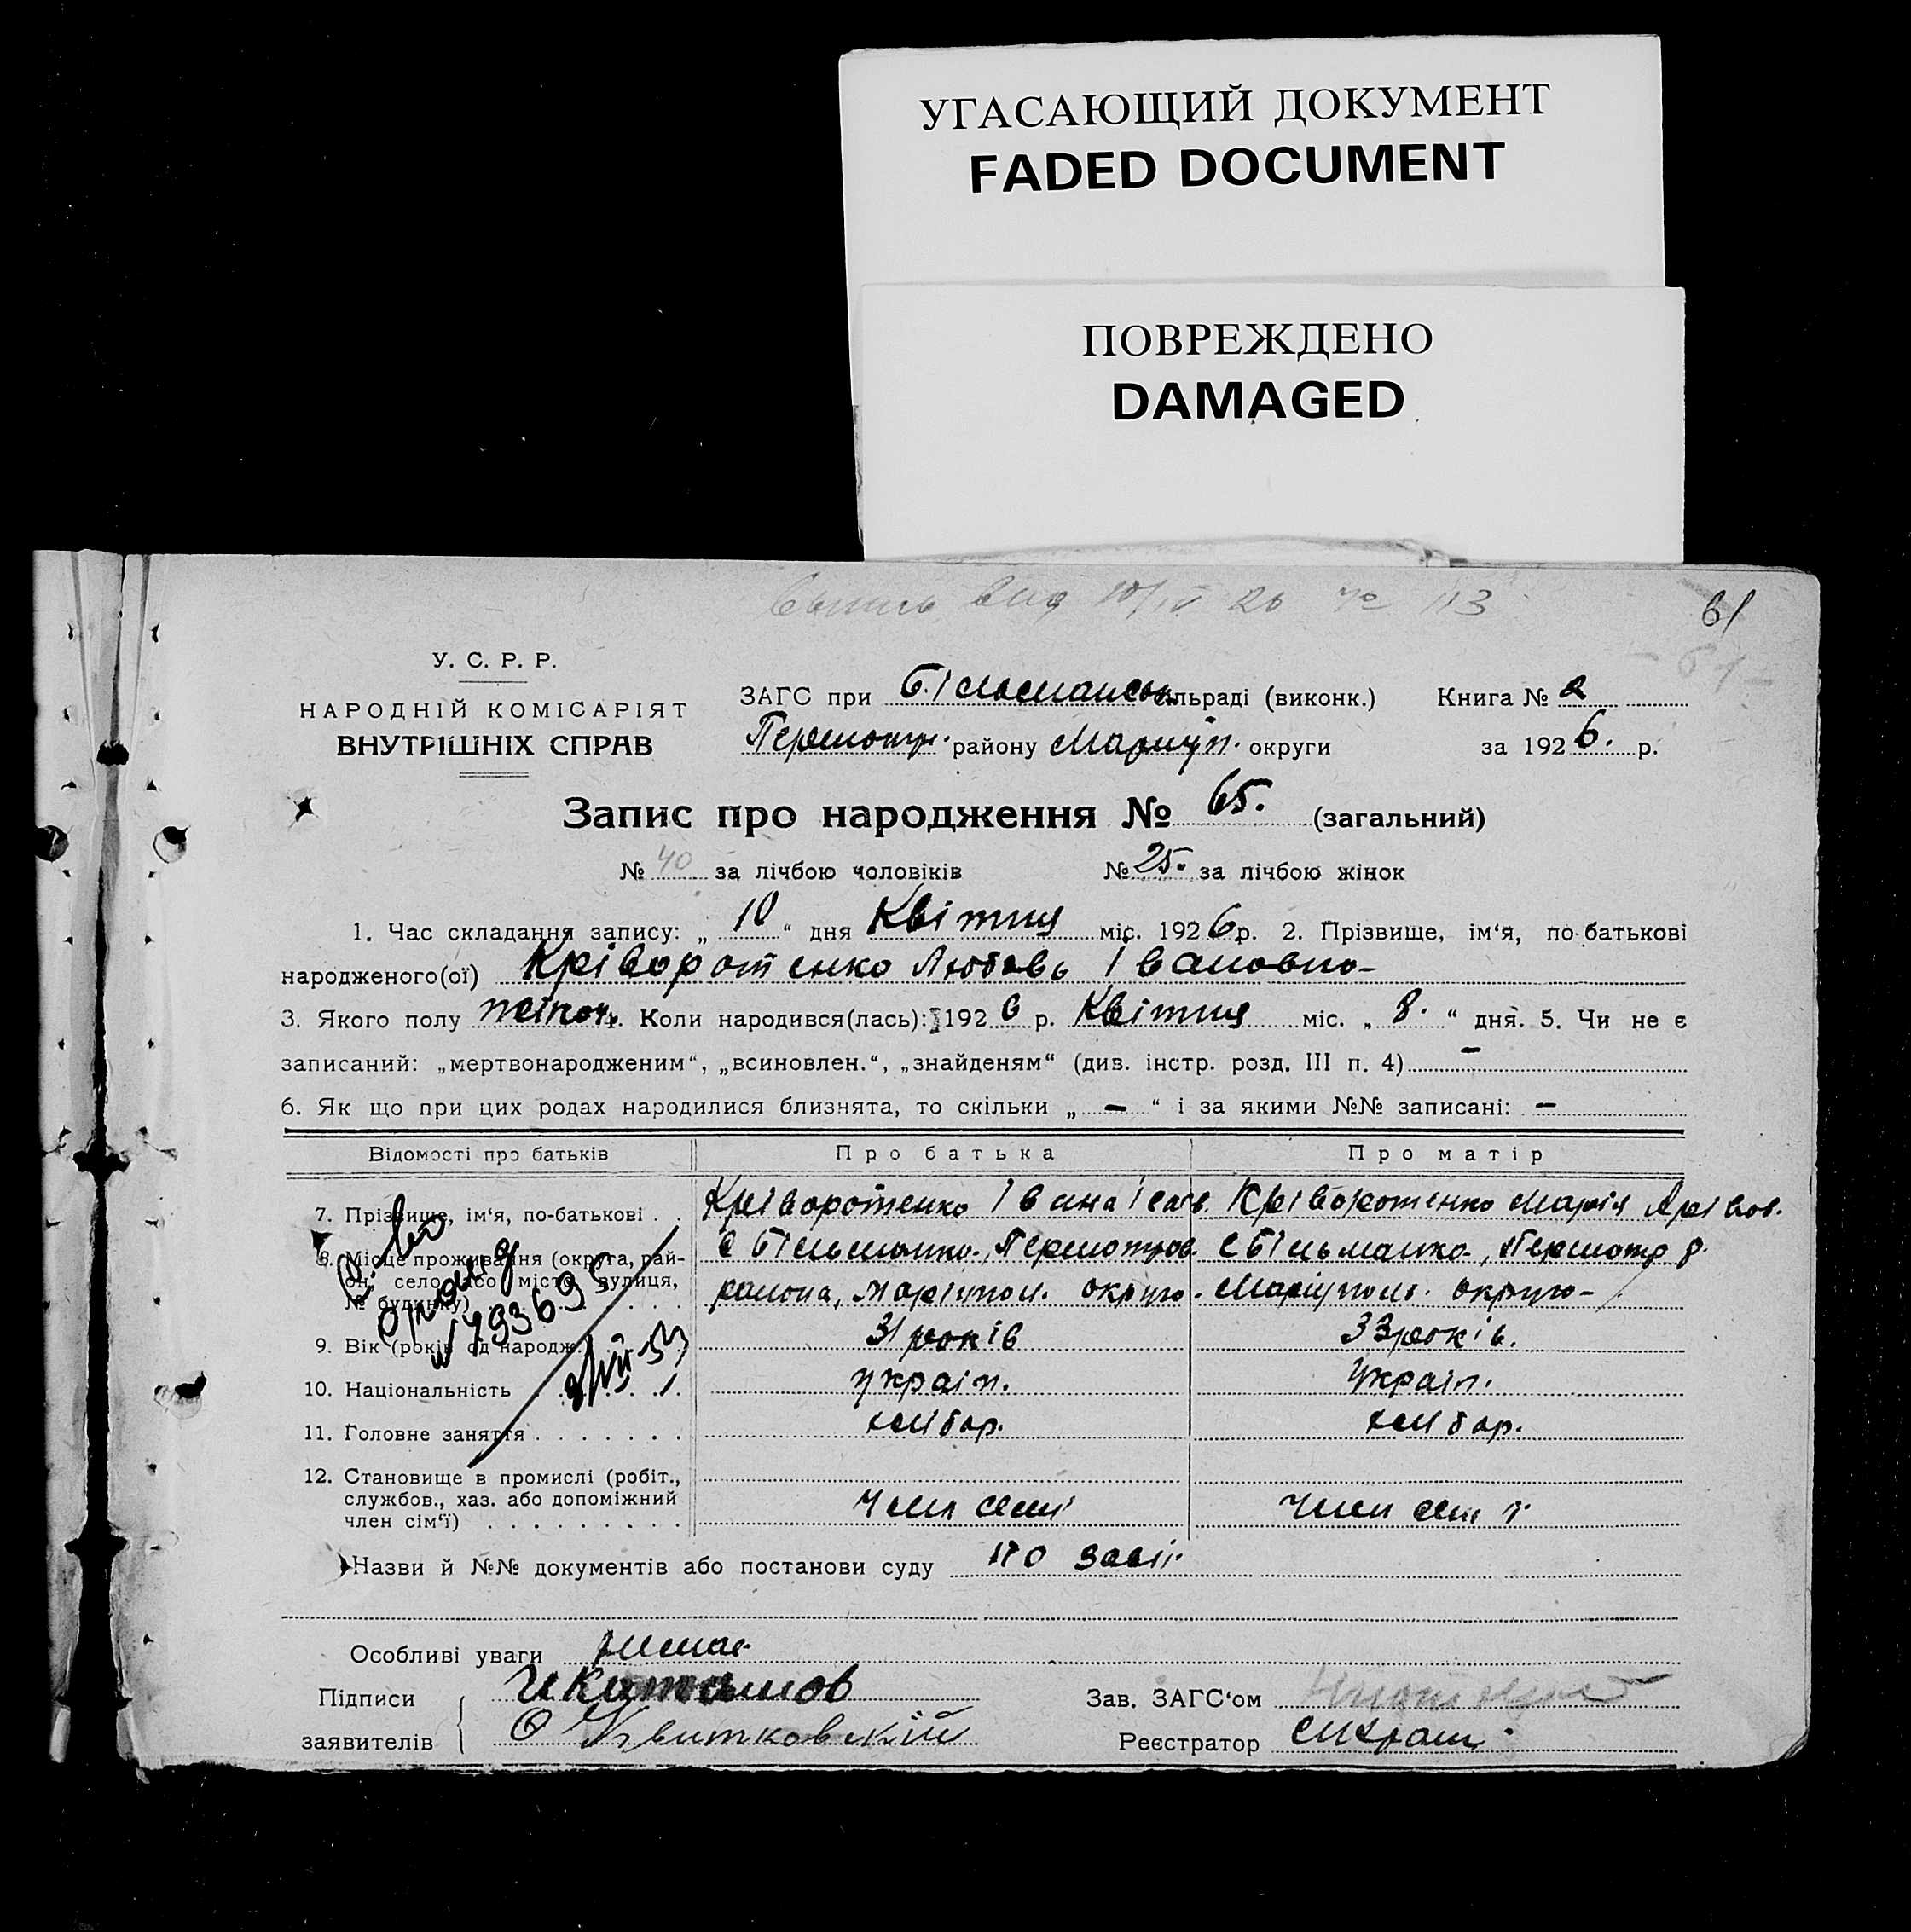 УГАСАЮЩИЙ ДОКУМЕНТ
FADED DOCUMENT
ПОВРЕЖДЕНО
DAMAGED
вид 10/IV 26 № 113
61
У. С. Р. Р.
НАРОДНІЙ КОМІСАРІЯТ
ВНУТРІШНІХ СПРАВ
ЗАГС при Більманськ. сільраді (виконк.) Книга № 2
району Маріуп. округи за 1926. р.
Запис про народження № 65. (загальний)
№ 40 за лічбою чоловіків № 25. за лічбою жінок
1. Час складання запису: „ 10 “ дня Квітня міс. 1926 р. 2. Прізвище, ім‘я, по-батькові
народженого(ої) Кріворотенко Любовь Івановно-
3. Якого полу Коли народився(лась): 1926 р. Квітня міс. „ 8. “ дня. 5. Чи не є
записаний: „мертвонародженим“, „всиновлен.“, „знайденям“ (див. інстр. розд. III п. 4) –
6. Як що при цих родах народилися близнята, то скільки „ – “ і за якими №№ записані: –
Відомості про батьків Про батька Про матір
7. Прізвище, ім‘я, по-батькові . . Кріворотенко Івана Кріворотенко Марія
8. Місце проживання (округа, рай- с Більманко., с Більманко-,
он, село або місто, вулиця, района, округо. Маріуполь. округо-
№ будинку) . . .
9. Вік (років од народж.) 31 років 33 років.
10. Національність україн. Україн.
11. Головне заняття . . . . . . . хлібор. хлібор.
12. Становище в промислі (робіт.,
службов., хаз. або допоміжний Член семї Член сем ї
член сім‘ї) . . . . . . . . .
№ 793695
Назви й №№ документів або постанови суду по
Особливі уваги немає
Підписи Зав. ЗАГС‘ом
заявителів О Квитковский Реєстратор